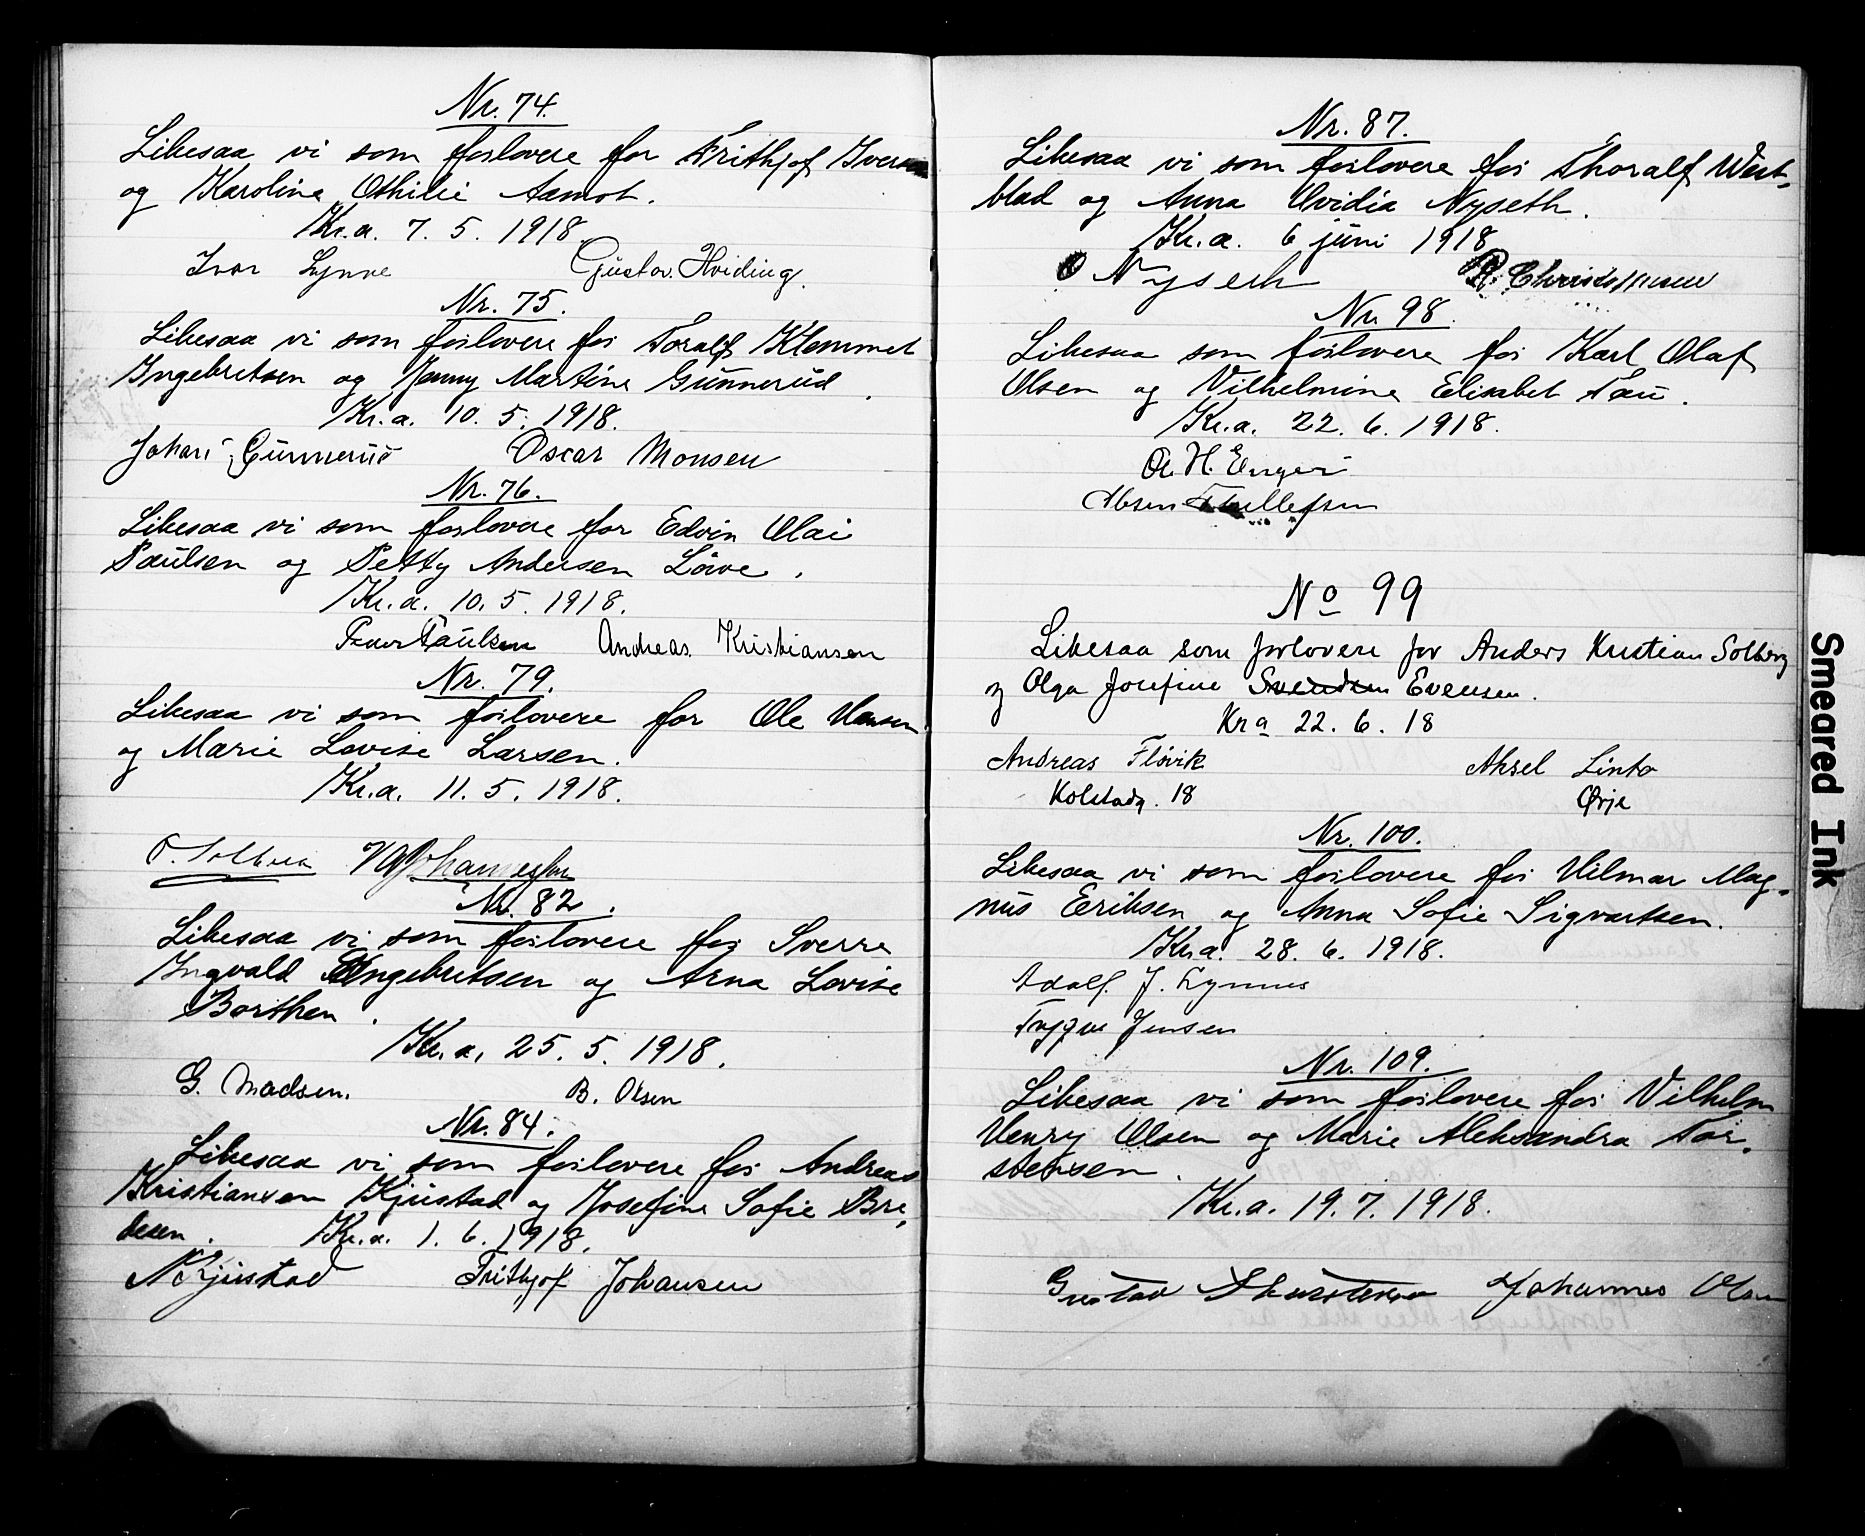 Nr. 74.
Likesaa vi som forlovere for Frithjof Iversen
og Karoline Othilie Aamot.
Kr.a. 7. 5. 1918.
Ivar Lynne Gustav. Hviding.
Nr. 75.
Likesaa vi som forlovere for Toralf Klemmet
Ingebretsen og Jenny Martine Gunnerud.
Kr.a. 10. 5. 1918.
Johan Gunnerud Oscar Monsen
Nr. 76.
Likesaa vi som forlovere for Edvin Olai
Paulsen og Petty Andersen Löwe.
Kr.a. 10. 5. 1918.
Paulsen Andreas Kristiansen
Nr. 79.
Likesaa vi som forlovere for Ole Hansen
og Marie Lovise Larsen.
Kr.a. 11. 5. 1918.
O. Solberg Johannessen
Nr. 82.
Likesaa vi som forlovere for Sverre
Ingvald Engebretsen og Arna Lovise
Borthen.
Kr.a. 25. 5. 1918.
G. Madsen. B. Olsen
Nr. 84.
Likesaa vi som forlovere for Andreas
Kristiansen Kjustad og Josefine Sofie Bre-
desen. Kr.a. 1. 6. 1918.
N Kjustad Frithjof Johansen
Nr. 87.
Likesaa vi som forlovere for Thoralf West-
blad og Anna Ovidia Nyseth.
Kr.a. 6 juni 1918
O Nyseth R. Christensen
Nr. 98.
Likesaa som forlovere for Karl Olaf
Olsen og Vilhelmine Elisabet Tau.
Kr.a. 22. 6. 1918.
O. H. Enger
Thellefsen
No 99
Likesaa som forlovere for Anders Kristian Solberg
og Olga Josefine Svendsen Evensen.
Kra 22. 6. 18
Andreas Fløvik Aksel Linto
Kolstadg. 18 Ørje
Nr. 100.
Likesaa vi som forlovere for Hilmar Mag-
nus Eriksen og Anna Sofie Sigvartsen.
Kr.a. 28. 6. 1918.
Adolf. J. Lynnes
Trygve Jensen
Nr. 109.
Likesaa vi som forlovere for Vilhelm
Henry Olsen og Marie Aleksandra Tor-
stensen.
Kr.a. 19. 7. 1918.
Gustav Thorstensen Johannes Olsen
Smeared Ink